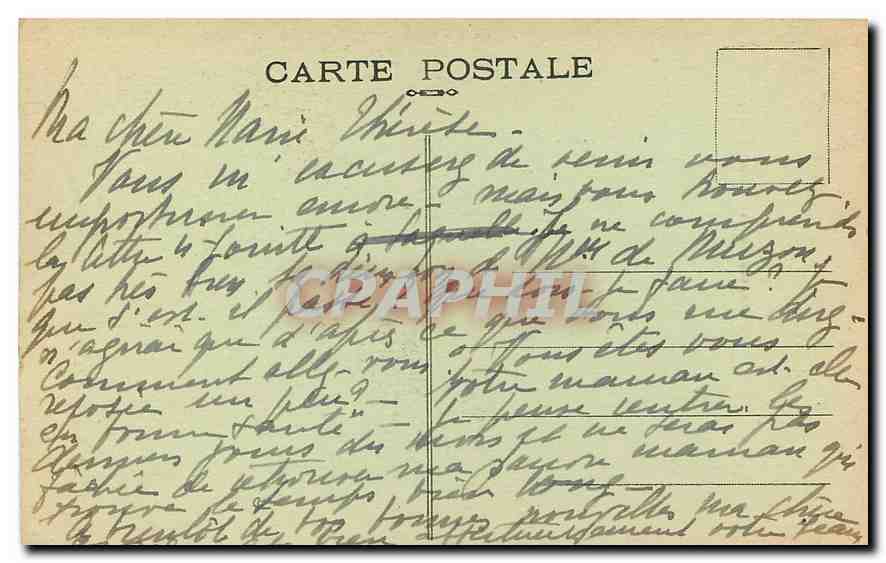 CARTE POSTALE
Ma chère Marie Thérèse -
Vous m'excuserez de venir vous
importuner encore - mais vous trouvez
la lettre "jointe à laquelle je ne comprends
pas très bien la de Mlle de Muzon,
que s'est-il passé? Que dois-je faire? Je
n'agirai que d'après ce que vous me direz -
Comment allez-vous? Vous êtes vous
reposée un peu? - votre maman est-elle
en bonne santé" - Je pense rentrer les
derniers jours du mois et ne serai pas
fâchée de retrouver ma pauvre maman qui
trouve le temps bien long -
A bientôt de vos bonnes nouvelles ma chère
bien affectueusement votre
CPAPHIL